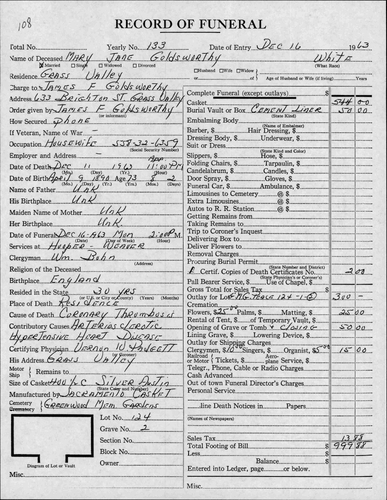 108
RECORD OF FUNERAL
Total No. Yearly No. 133 Date of Entry Dec 16 1963
Name of Deceased Mary Jane Goldsworthy White
(What Race)
Married Single Widowed Divorced Husband Wife Widow or
Residence Grass Valley Age of Husband or Wife (if living) Years
Charge to James F Goldsworthy
Address 633 Brighton St Grass Valley
Order given by James F Goldsworthy
How Secured Phone
If Veteran, Name of War
Occupation Housewife
(Social Security Number)
Employer and Address
Date of Death Dec 11 1963 11:00 PM
Date of Birth April 9 1890 Age 73 8 2
Name of Father Unk
His Birthplace Unk
Maiden Name of Mother Unk
Her Birthplace Unk
Date of Funeral Dec 16-1963 Mon 2:00 PM
Services at Hooper-Weaver
Clergyman Wm Bohn
Religion of the Deceased
Birthplace England
Resided in the State 30 yrs
Place of Death Residence
Cause of Death Coronary Thrombosis
Contributory Causes Arteriosclerotic
Hypertensive Heart Disease
Certifying Physician Vernon W Padgett
His Address Grass Valley
Motor
Ship Remains to
Size of Casket Silver Austin
(State Color and Number)
Manufactured by Sacramento Casket
Cemetery Greenwood Mem Gardens
Lot No. 124
Grave No. 2
Section No.
Block No.
Owner
Diagram of Lot or Vault
Misc.
Complete Funeral (except outlays) $
Casket 544.00
Burial Vault or Box Cement Liner 50.00
(State Kind)
Embalming Body
Barber, $ Hair Dressing, $
Dressing Body, $ Underwear, $
Suit or Dress
(State Kind and Color)
Slippers, $ Hose, $
Folding Chairs, $ Tarpaulin, $
Candelabrum, $ Candles, $
Door Spray, $ Gloves, $
Funeral Car, $ Ambulance, $
Limousines to Cemetery @ $
Extra Limousines @ $
Autos to R. R. Station @ $
Getting Remains from
Taking Remains to
Trip to Coroner's Inquest
Delivering Box to
Deliver Flowers to
Removal Charges
Procuring Burial Permit
(State Number and District)
Certif. Copies of Death Certificates No. 2.00
(State Physician's or Coroner's)
Pall Bearer Service, $ Use of Chapel, $
Gross Total for Sales Tax $
Outlay for Lot 300 -
Flowers, $25.00 Palms, $ Matting, $ 25.00
Rental of Tent, $ of Temporary Vault, $
Opening of Grave or Tomb & Closing 50.00
Lining Grave, $ Lowering Device, $
Outlay for Shipping Charges
Clergymen, $10.00 Singers, $ Organist, $5.00 15.00
Railroad or Motor Tickets, $ Aeroplane Service, $
Telegr., Phone, Cable or Radio Charges
Cash Advanced
Out of town Funeral Director's Charges
Personal Service
line Death Notices in Papers
Sales Tax 13.88
Total Footing of Bill $ 999.88
Less
Balance $
Entered into Ledger, page or below.